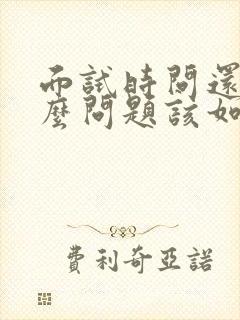 而試時問還
麼問題該如
費利奇亞諾